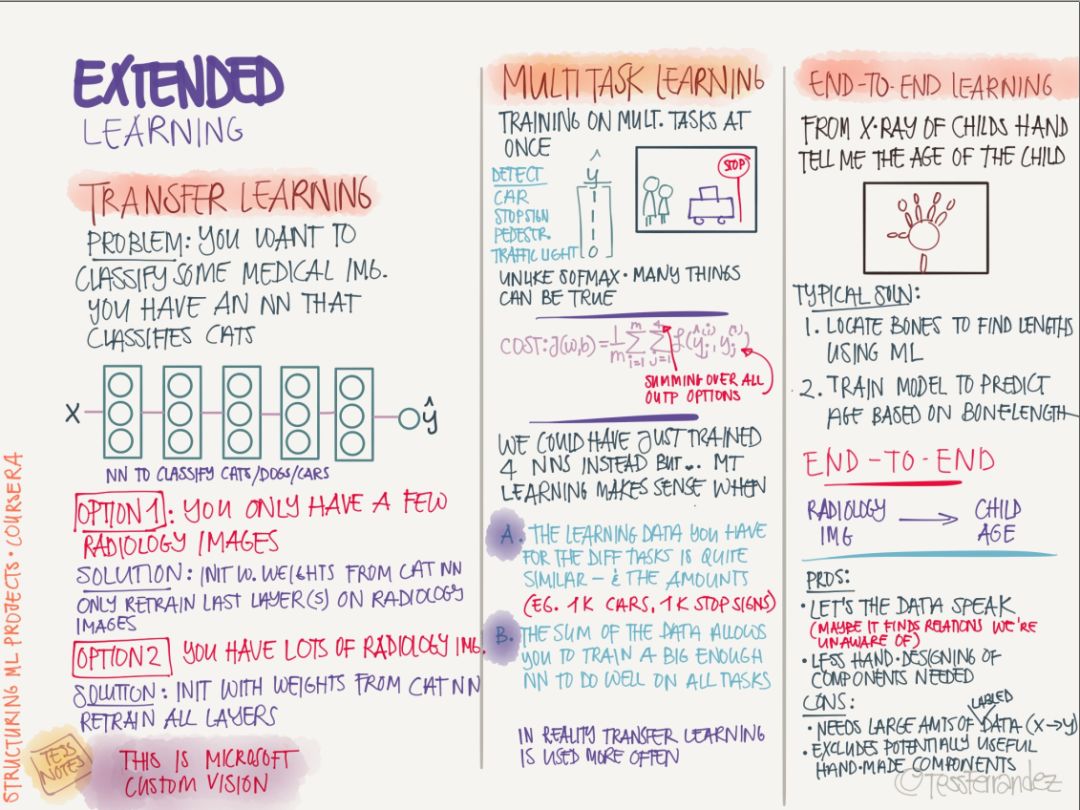 EXTENDED
LEARNING
TRANSFER LEARNING
PROBLEM: YOU WANT TO
CLASSIFY SOME MEDICAL IMG.
YOU HAVE AN NN THAT
CLASSIFIES CATS
X
ŷ
NN TO CLASSIFY CATS/DOGS/CARS
OPTION 1: YOU ONLY HAVE A FEW
RADIOLOGY IMAGES
SOLUTION: INIT W. WEIGHTS FROM CAT NN
ONLY RETRAIN LAST LAYER(S) ON RADIOLOGY
IMAGES
OPTION 2 YOU HAVE LOTS OF RADIOLOGY IMG.
SOLUTION: INIT WITH WEIGHTS FROM CAT NN
RETRAIN ALL LAYERS
THIS IS MICROSOFT
CUSTOM VISION
TESS
NOTES
STRUCTURING ML PROJECTS • COURSERA
MULTITASK LEARNING
TRAINING ON MULT. TASKS AT
ONCE
DETECT
CAR
STOPSIGN
PEDESTR.
TRAFFIC LIGHT
ŷ
1
1
1
0
STOP
UNLIKE SOFMAX • MANY THINGS
CAN BE TRUE
COST: J(ω,b) = 1/m ∑ᵢ₌₁ᵐ ∑ⱼ₌₁⁴ ℒ(ŷⱼ⁽ⁱ⁾, yⱼ⁽ⁱ⁾)
SUMMING OVER ALL
OUTP OPTIONS
WE COULD HAVE JUST TRAINED
4 NNS INSTEAD BUT... MT
LEARNING MAKES SENSE WHEN
A. THE LEARNING DATA YOU HAVE
FOR THE DIFF TASKS IS QUITE
SIMILAR - & THE AMOUNTS
(EG. 1K CARS, 1K STOP SIGNS)
B. THE SUM OF THE DATA ALLOWS
YOU TO TRAIN A BIG ENOUGH
NN TO DO WELL ON ALL TASKS
IN REALITY TRANSFER LEARNING
IS USED MORE OFTEN
END-TO-END LEARNING
FROM X-RAY OF CHILDS HAND
TELL ME THE AGE OF THE CHILD
TYPICAL SOLN:
1. LOCATE BONES TO FIND LENGTHS
USING ML
2. TRAIN MODEL TO PREDICT
AGE BASED ON BONELENGTH
END-TO-END
RADIOLOGY → CHILD
IMG AGE
PROS:
• LET'S THE DATA SPEAK
(MAYBE IT FINDS RELATIONS WE'RE
UNAWARE OF)
• LESS HAND-DESIGNING OF
COMPONENTS NEEDED
CONS:
LABLED
• NEEDS LARGE AMTS OF DATA (X→Y)
• EXCLUDES POTENTIALLY USEFUL
HAND-MADE COMPONENTS
@TessFerrandez